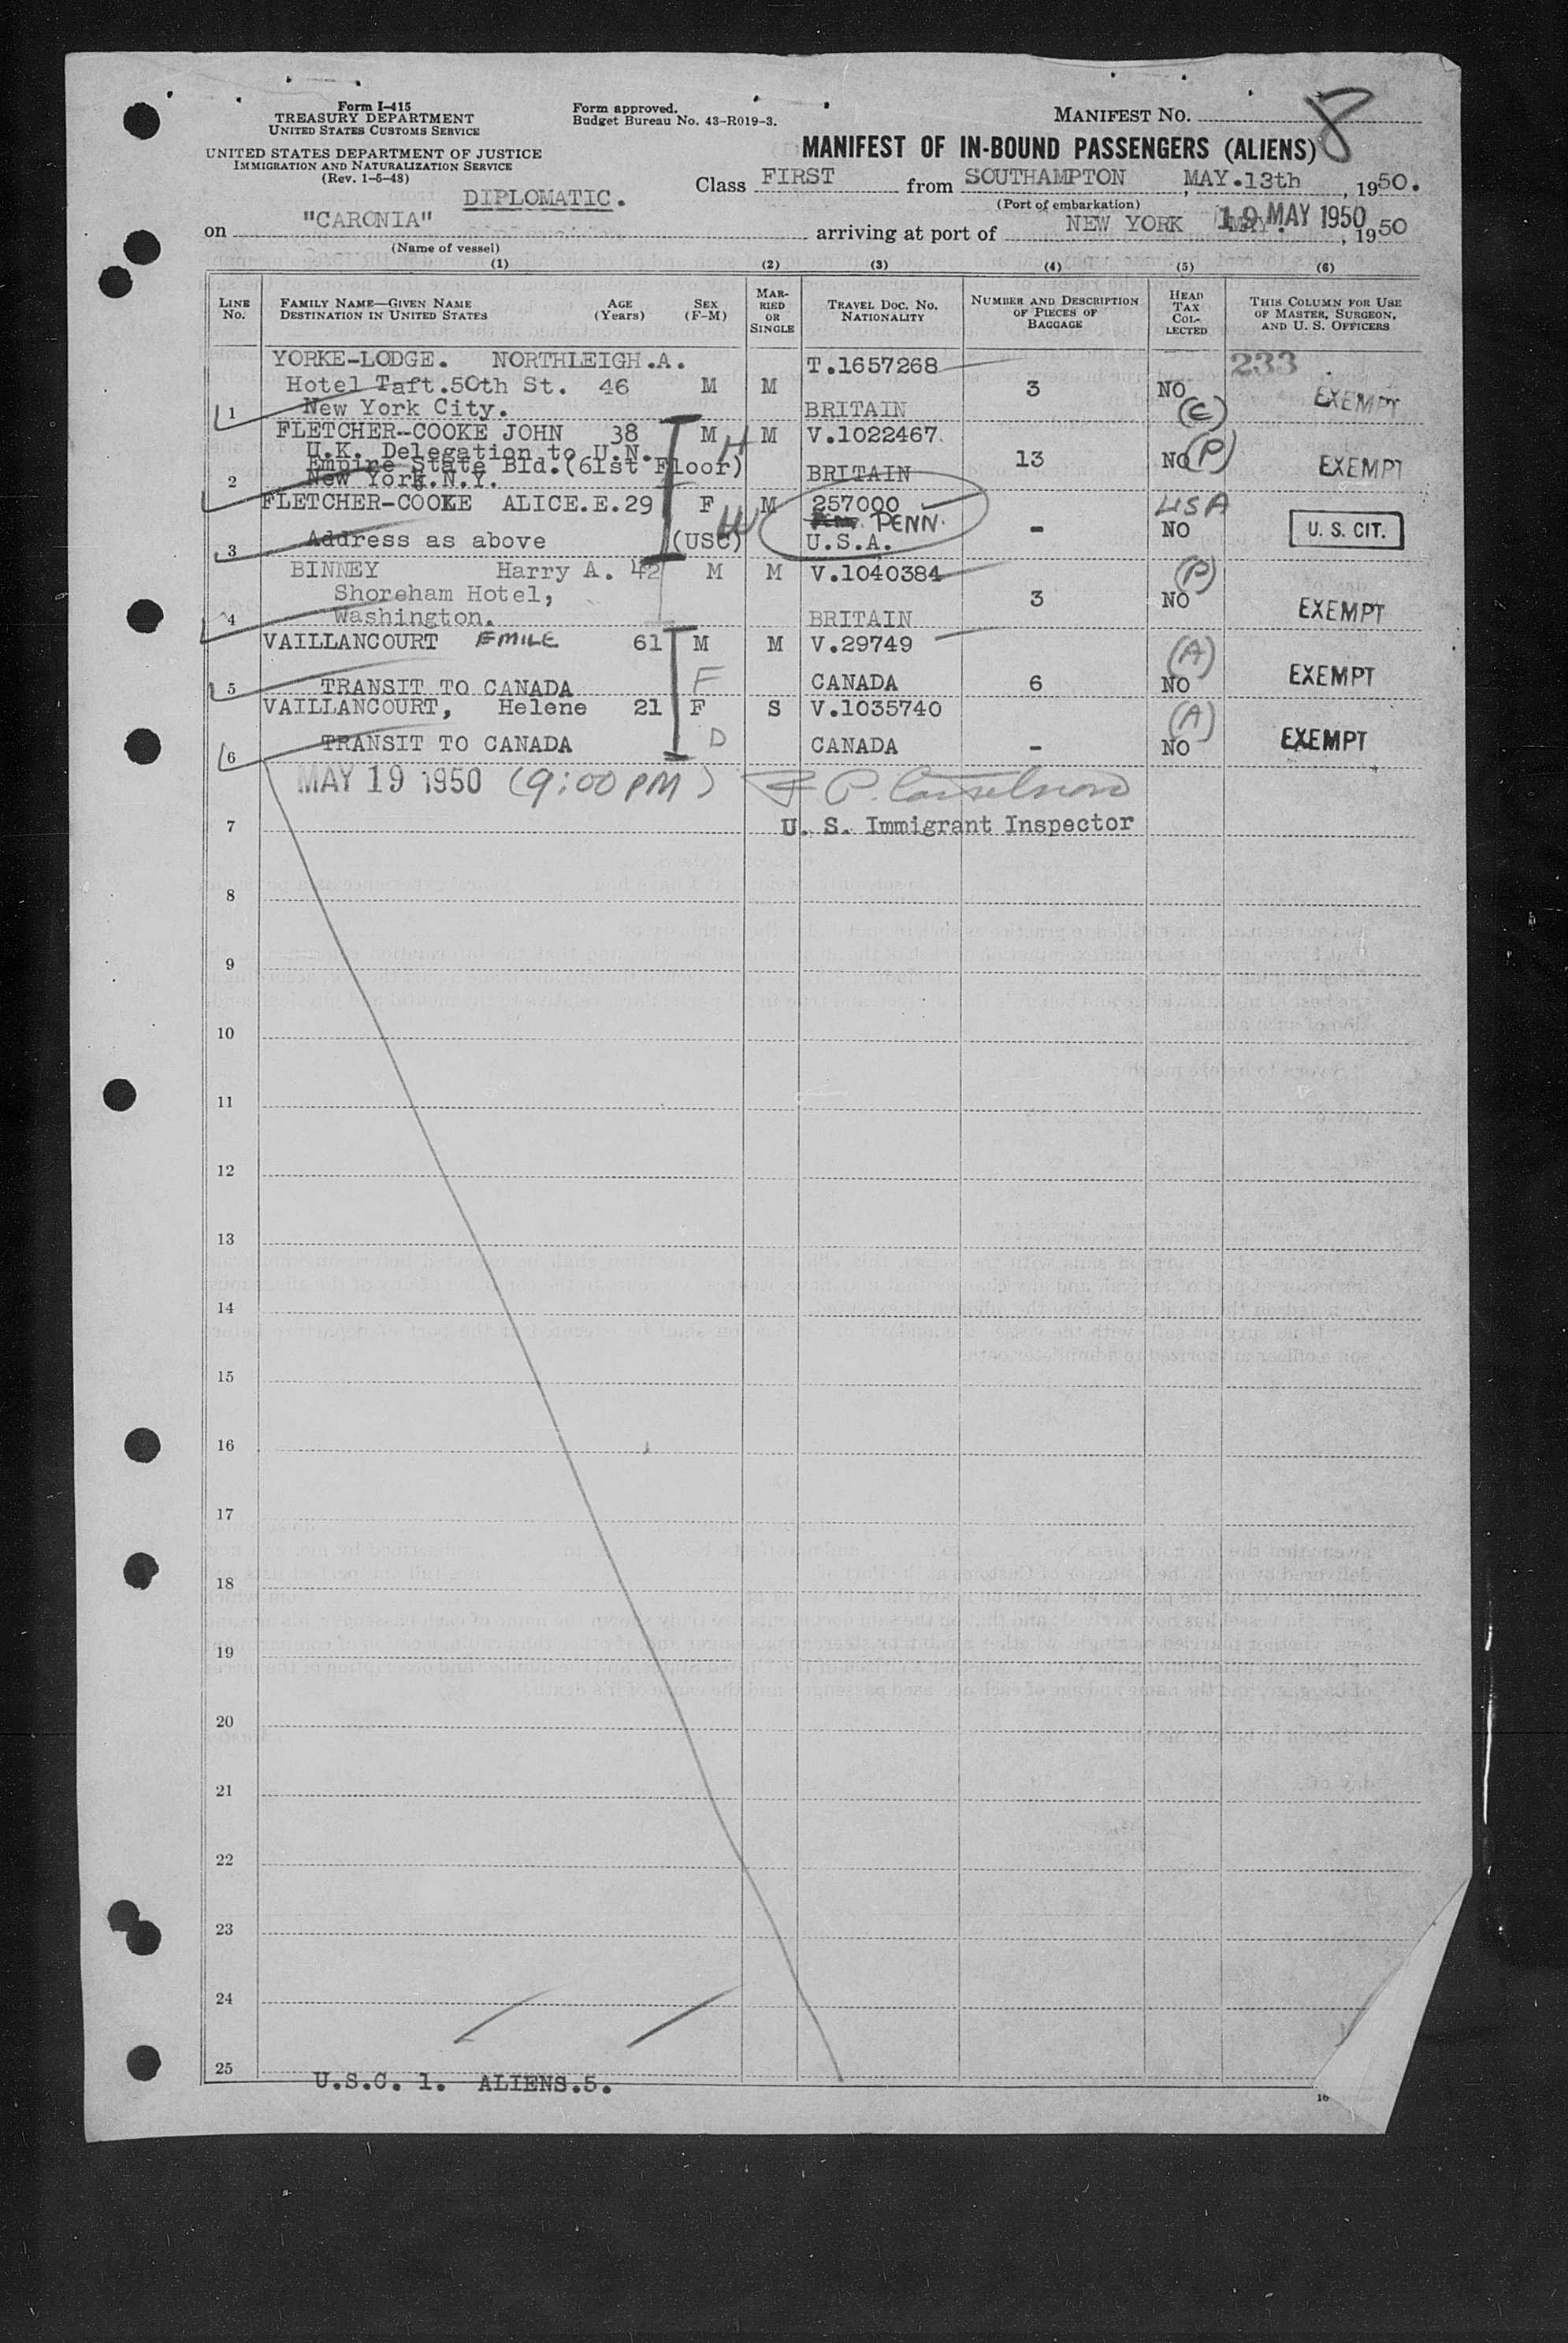 Form I-415
TREASURY DEPARTMENT
UNITED STATES CUSTOMS SERVICE
Form approved.
Budget Bureau No. 43-R019-3.
MANIFEST NO. 8
UNITED STATES DEPARTMENT OF JUSTICE
IMMIGRATION AND NATURALIZATION SERVICE
(Rev. 1-5-48)
MANIFEST OF IN-BOUND PASSENGERS (ALIENS)
DIPLOMATIC.
Class FIRST from SOUTHAMPTON, MAY.13th, 1950.
(Port of embarkation)
on "CARONIA" arriving at port of NEW YORK 19 MAY 1950, 1950
(Name of vessel)
(1) (2) (3) (4) (5) (6)
LINE No. FAMILY NAME—GIVEN NAME DESTINATION IN UNITED STATES AGE (Years) SEX (F-M) MARRIED OR SINGLE TRAVEL DOC. NO. NATIONALITY NUMBER AND DESCRIPTION OF PIECES OF BAGGAGE HEAD TAX COLLECTED THIS COLUMN FOR USE OF MASTER, SURGEON, AND U. S. OFFICERS
YORKE-LODGE. NORTHLEIGH.A. T.1657268 233
Hotel Taft.50th St. 46 M M 3 NO EXEMPT
1 New York City. BRITAIN (C)
FLETCHER-COOKE JOHN 38 M H M V.1022467.
U.K. Delegation to U.N.
Empire State Bld.(61st Floor) BRITAIN 13 NO (P) EXEMPT
2 New York.N.Y.
FLETCHER-COOKE ALICE.E.29 F W M 257000 USA
PENN.
3 Address as above (USC) U.S.A. - NO U. S. CIT.
BINNEY Harry A. 42 M M V.1040384 (P)
Shoreham Hotel, 3 NO EXEMPT
4 Washington. BRITAIN
VAILLANCOURT EMILE 61 M M V.29749 (A)
5 TRANSIT TO CANADA F CANADA 6 NO EXEMPT
VAILLANCOURT, Helene 21 F S V.1035740 (A)
6 TRANSIT TO CANADA D CANADA - NO EXEMPT
MAY 19 1950 (9:00 PM)
7 U. S. Immigrant Inspector
8
9
10
11
12
13
14
15
16
17
18
19
20
21
22
23
24
25
U.S.C. 1. ALIENS.5.
16